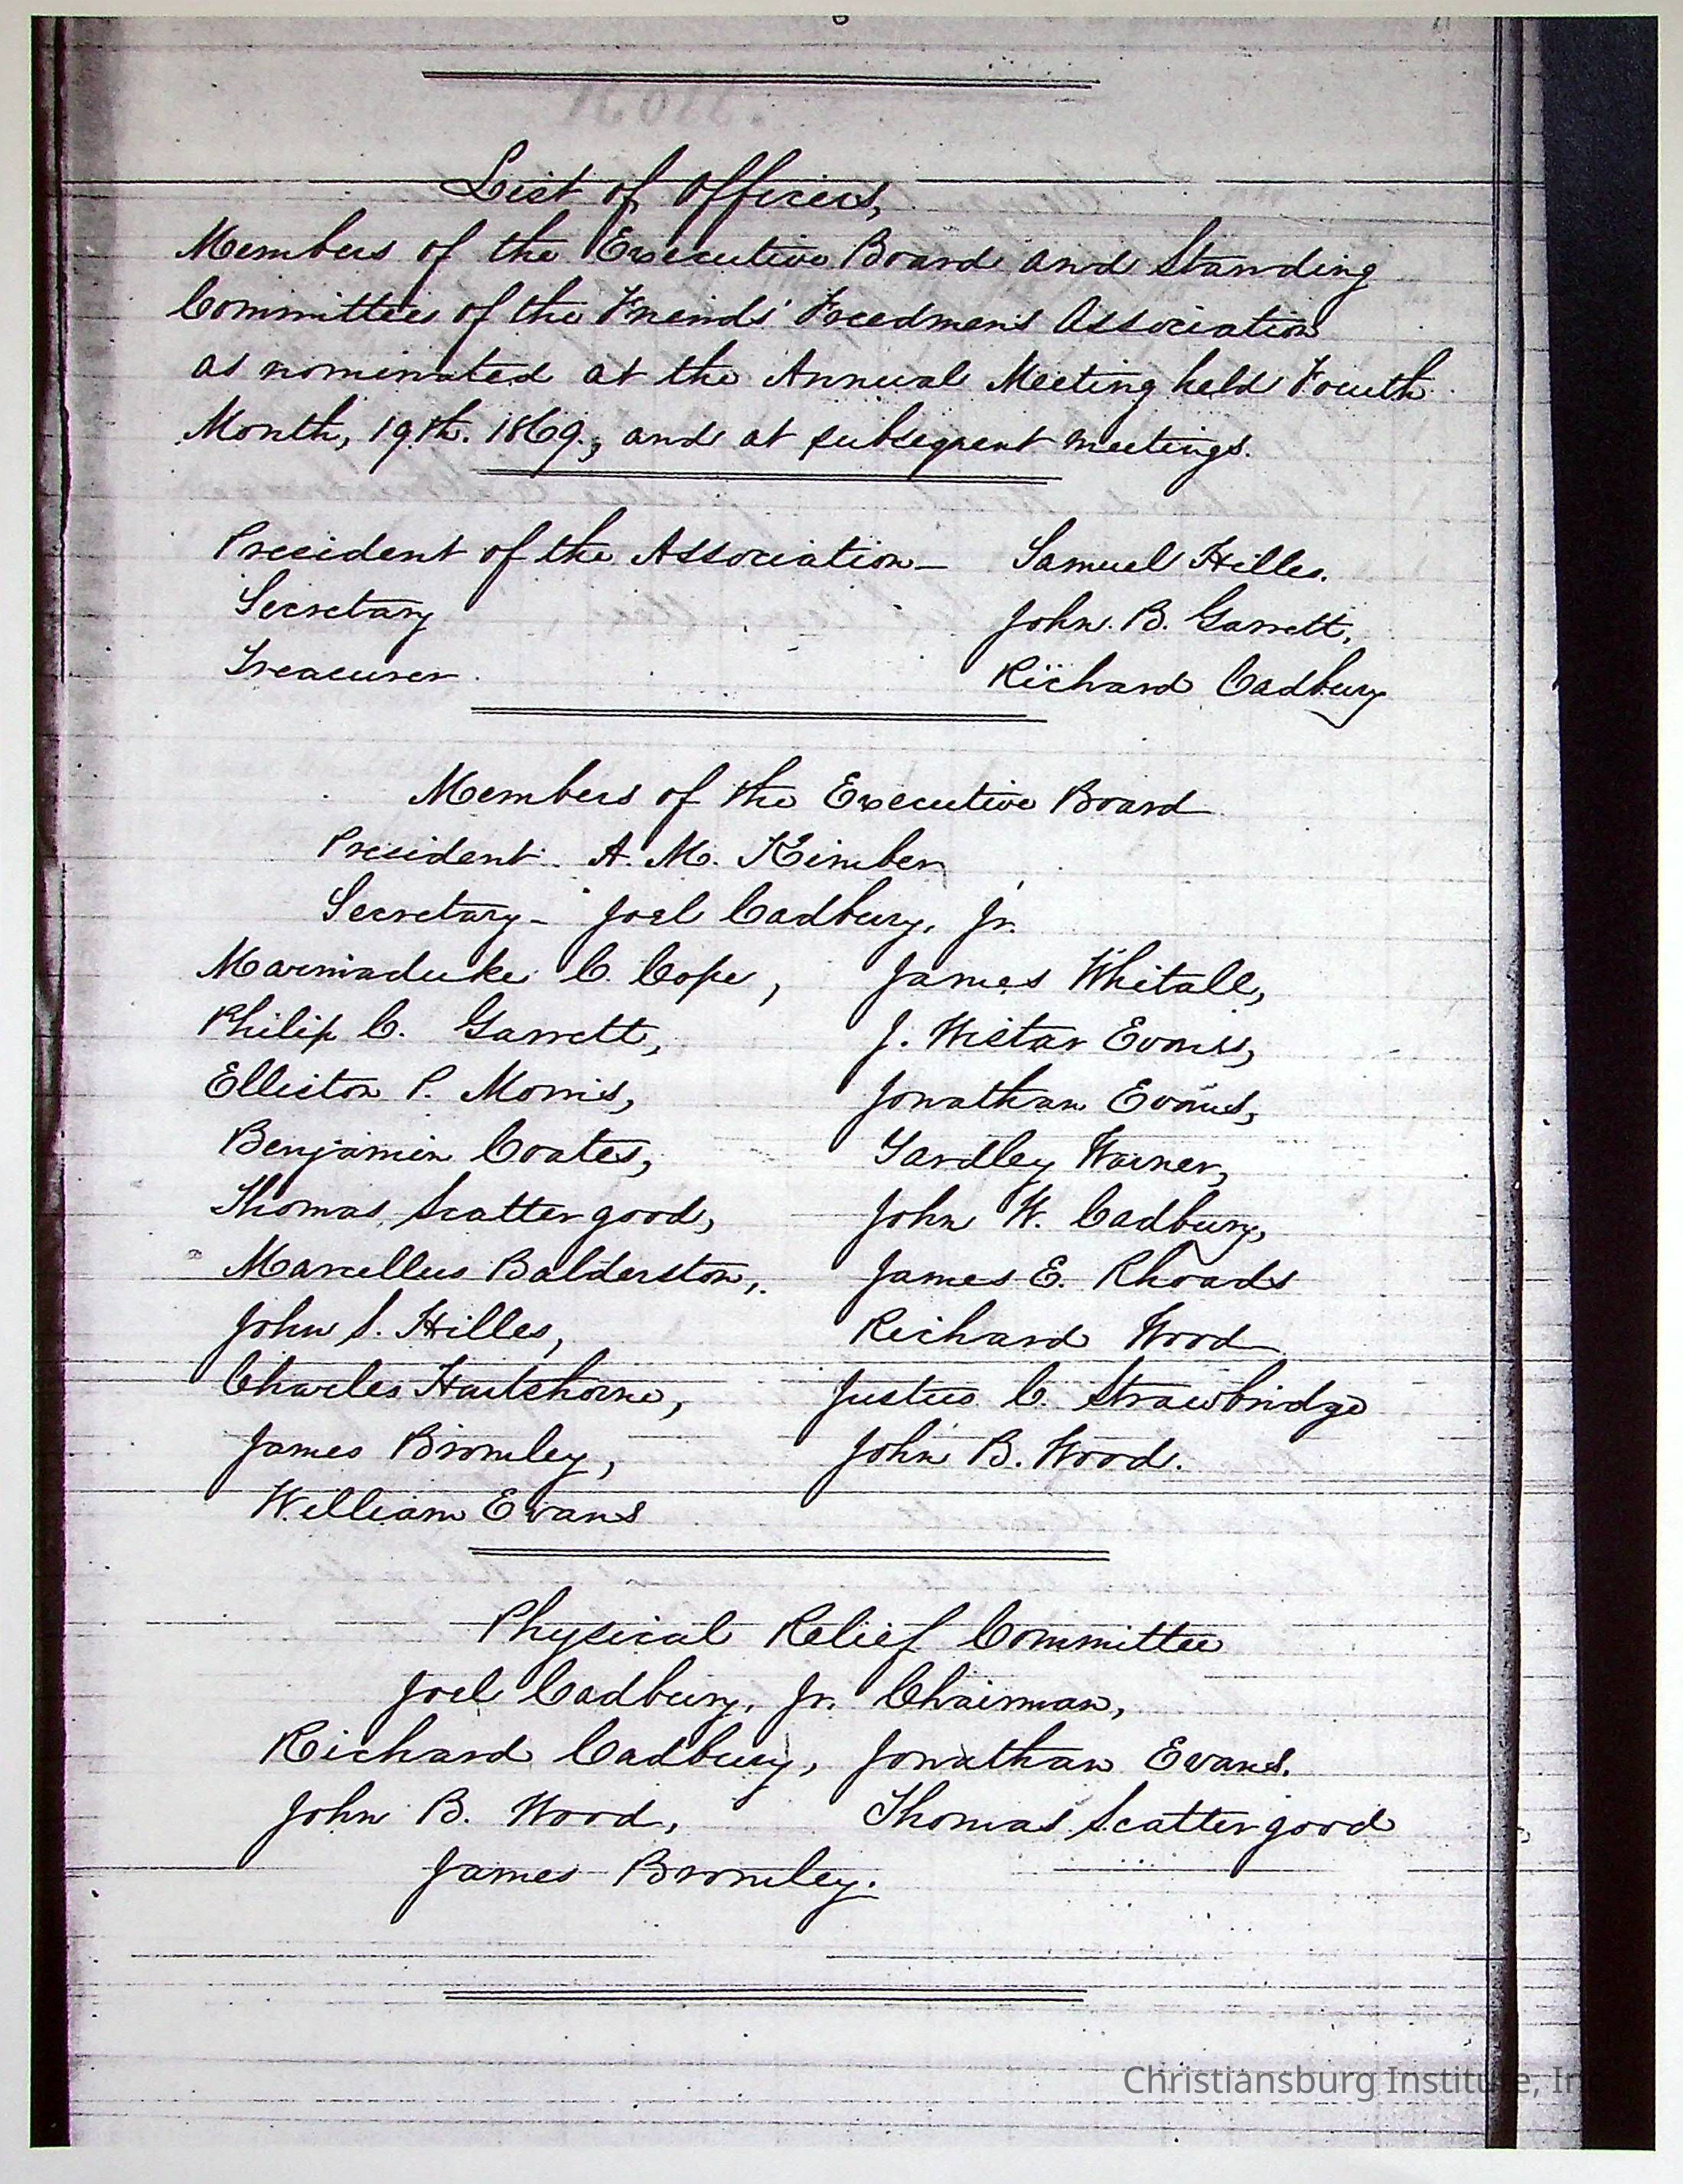 List of Officers,
Members of the Executive Board and Standing
Committees of the Friends' Freedmen's Association
as nominated at the Annual Meeting held Fourth
Month, 19th. 1869., and at subsequent meetings.
President of the Association - Samuel Hilles.
Secretary John. B. Garrett,
Treasurer. Richard Cadbury
Members of the Executive Board
President. A. M. Kimber
Secretary - Joel Cadbury, Jr.
Marmaduke C. Cope, James Whitall,
Philip C. Garrett, J. Wistar Evans,
Elliston P. Morris, Jonathan Evans,
Benjamin Coates, Yardley Warner,
Thomas Scattergood, John W. Cadbury,
Marcellus Balderston, James E. Rhoads
John S. Hilles, Richard Wood
Charles Hartshorne, Justus C. Strawbridge
James Bromley, John B. Wood.
William Evans
Physical Relief Committee
Joel Cadbury, Jr. Chairman,
Richard Cadbury, Jonathan Evans.
John B. Wood, Thomas Scattergood
James Bromley.
Christiansburg Institute, In